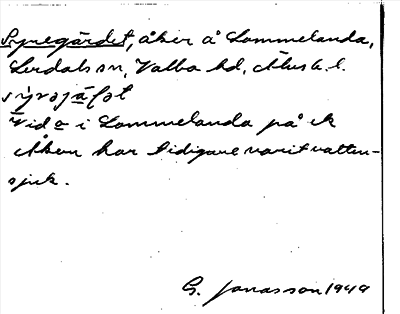 Syregärdet, åker å Lommelanda,
Lerdals sn, Valbo hd, Älvsb. l.
Vid e i Lommelanda på ek
Åkern har tidigare varit vatten-
sjuk.
G. Jonasson 1949